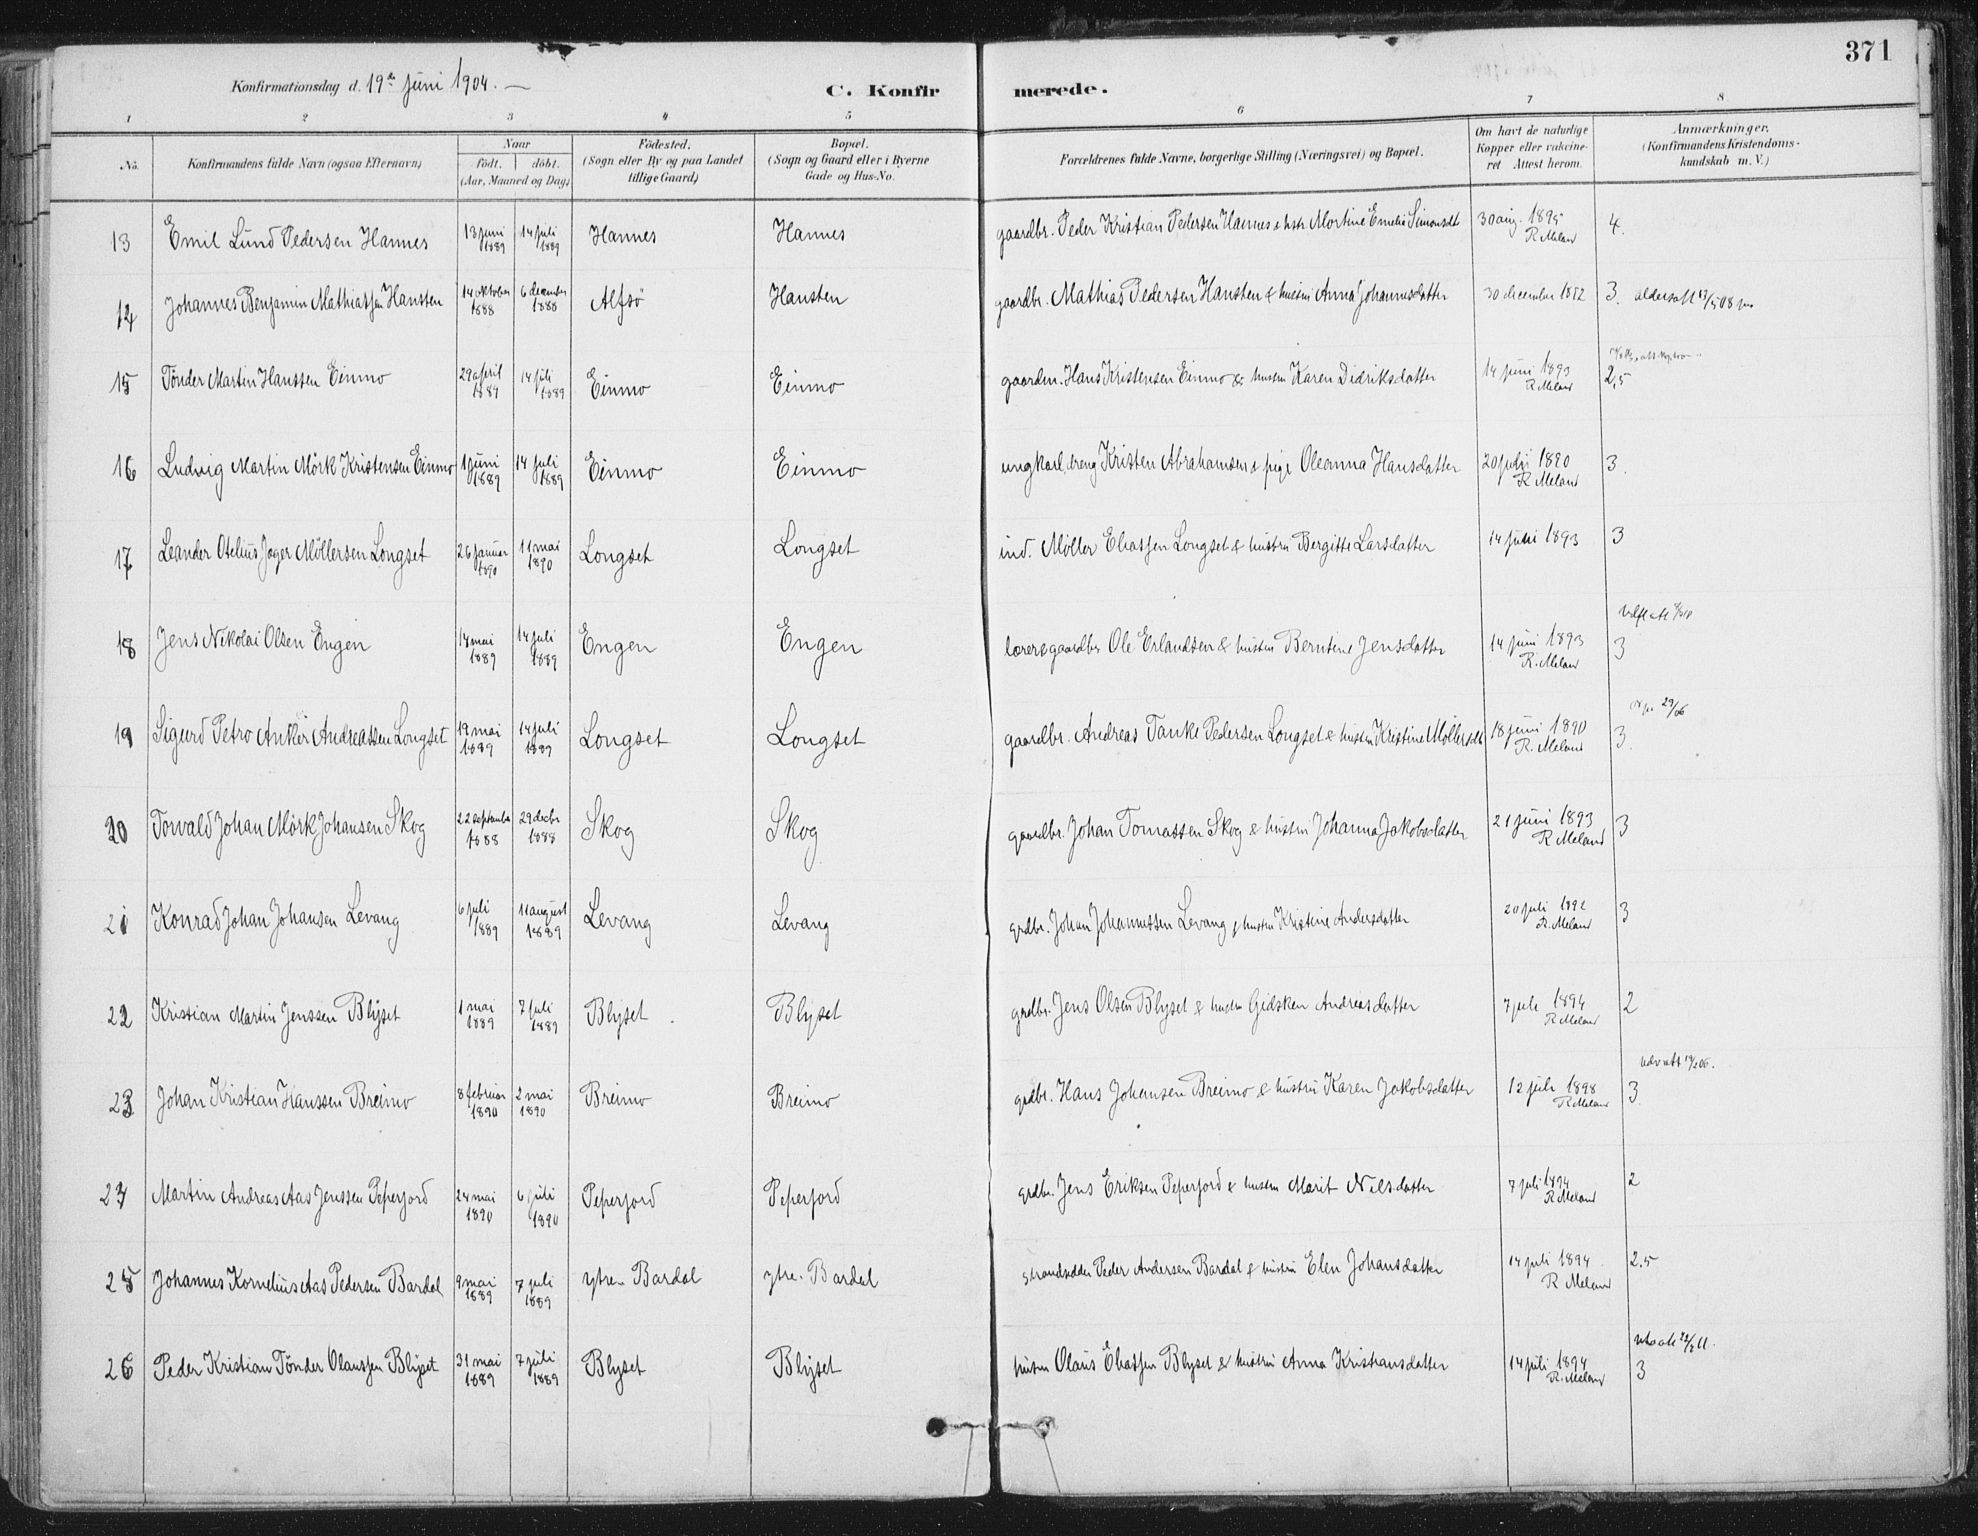 371
Konfirmationsdag d. 19de juni 1904. —
C. Konfirmerede.
1 2 3 4 5 6 7 8
No. Konfirmandens fulde Navn (ogsaa Efternavn) Naar født. døbt. (Aar, Maaned og Dag) Fødested. (Sogn eller By og paa Landet tillige Gaard) Bopæl. (Sogn og Gaard eller i Byerne Gade og Hus-No. Forældrenes fulde Navne, borgerlige Stilling (Næringsvei) og Bopæl. Om havt de naturlige Kopper eller vakcineret Attest herom. Anmærkninger. (Konfirmandens Kristendomskundskab m. V.)
13 Emil Lund Pedersen Hannes 13 juni 1889 14 juli 1889 Hannes Hannes gaardbr. Peder Kristian Pedersen Hannes & hstr Mortine Emelie Simonsdt 30 aug. 1895 R Meland 4.
14 Johannes Benjamin Mathiassen Hansten 14 oktober 1888 6 december 1888 Alfsö Hansten gaardbr. Mathias Pedersen Hansten & hustru Anna Johannesdatter 30 december 3.
15 Tönder Martin Hanssen Einmo 29 april 1889 14 juli 1889 Einmo Einmo gaardm. Hans Kristensen Einmo & hustru Karen Didriksdatter 14 juni 1893 R Meland 2,5
16 Ludvig Martin Mörk Kristensen Einmo 1 juni 1889 14 juli 1889 Einmo Einmo ungkarl, dreng Kristen Abrahamsen & pige Oleanna Hansdatter 20 juli 1890 R Meland 3.
17 Leander Otelius Jager Möllersen Longset 26 januar 1890 11 mai 1890 Longset Longset ind. Möller Eliassen Longset & hustru Bergitte Larsdatter 14 juni 1893 3
18 Jens Nikolai Olsen Engen 14 mai 1889 14 juli 1889 Engen Engen lærer & gaardbr Ole Erlandsen & hustru Berntine Jensdatter 14 juni 1893 R. Meland 3
19 Sigurd Petro Anker Andreassen Longset 19 mai 1889 14 juli 1889 Longset Longset gaardbr. Andreas Tanke Pedersen Longset & hustru Kristine Möllersdt 18 juni 1890 R. Meland 3.
20 Torvald Johan Mörk Johansen Skog 22 september 1888 29 decbr 1888 Skog Skog gaardbr. Johan Tomassen Skog & hustru Johanna Jakobsdatter 21 juni 1893 R Meland 3
21 Konrad Johan Johansen Levang 6 juli 1889 11 august 1889 Levang Levang grdbr. Johan Johannessen Levang & hustru Kristine Andersdatter 20 juli 1892 R. Meland 3
22 Kristian Martin Jenssen Blyset 1 mai 1889 7 juli 1889 Blyset Blyset grdbr. Jens Olsen Blyset & hustru Gidsken Andreasdatter 7 juli 1894 R Meland 2
23 Johan Kristian Hanssen Breimo 8 februar 1890 2 mai 1890 Breimo Breimo grdbr. Hans Johansen Breimo & hustru Karen Jakobsdatter 12 juli 1898 R Meland 3.
24 Martin Andreas Aas Jenssen Peperjord 24 mai 1890 6 juli 1890 Peperjord Peperjord grdbr. Jens Eriksen Peperjord & hustru Marit Nilsdatter 7 juli 1894 R Meland 2
25 Johannes Kornelius Aas Pedersen Bardal 9 mai 1889 7 juli 1889 ytre Bardal ytre Bardal Peder Andersen Bardal & hustru Elen Johansdatter 14 juli 1894 R Meland 2.5
26 Peder Kristian Tönder Olaussen Blyset 31 mai 1889 7 juli 1889 Blyset Blyset Olaus Eliassen Blyset & hustru Anna Kristiansdatter 14 juli 1894 R. Meland 3